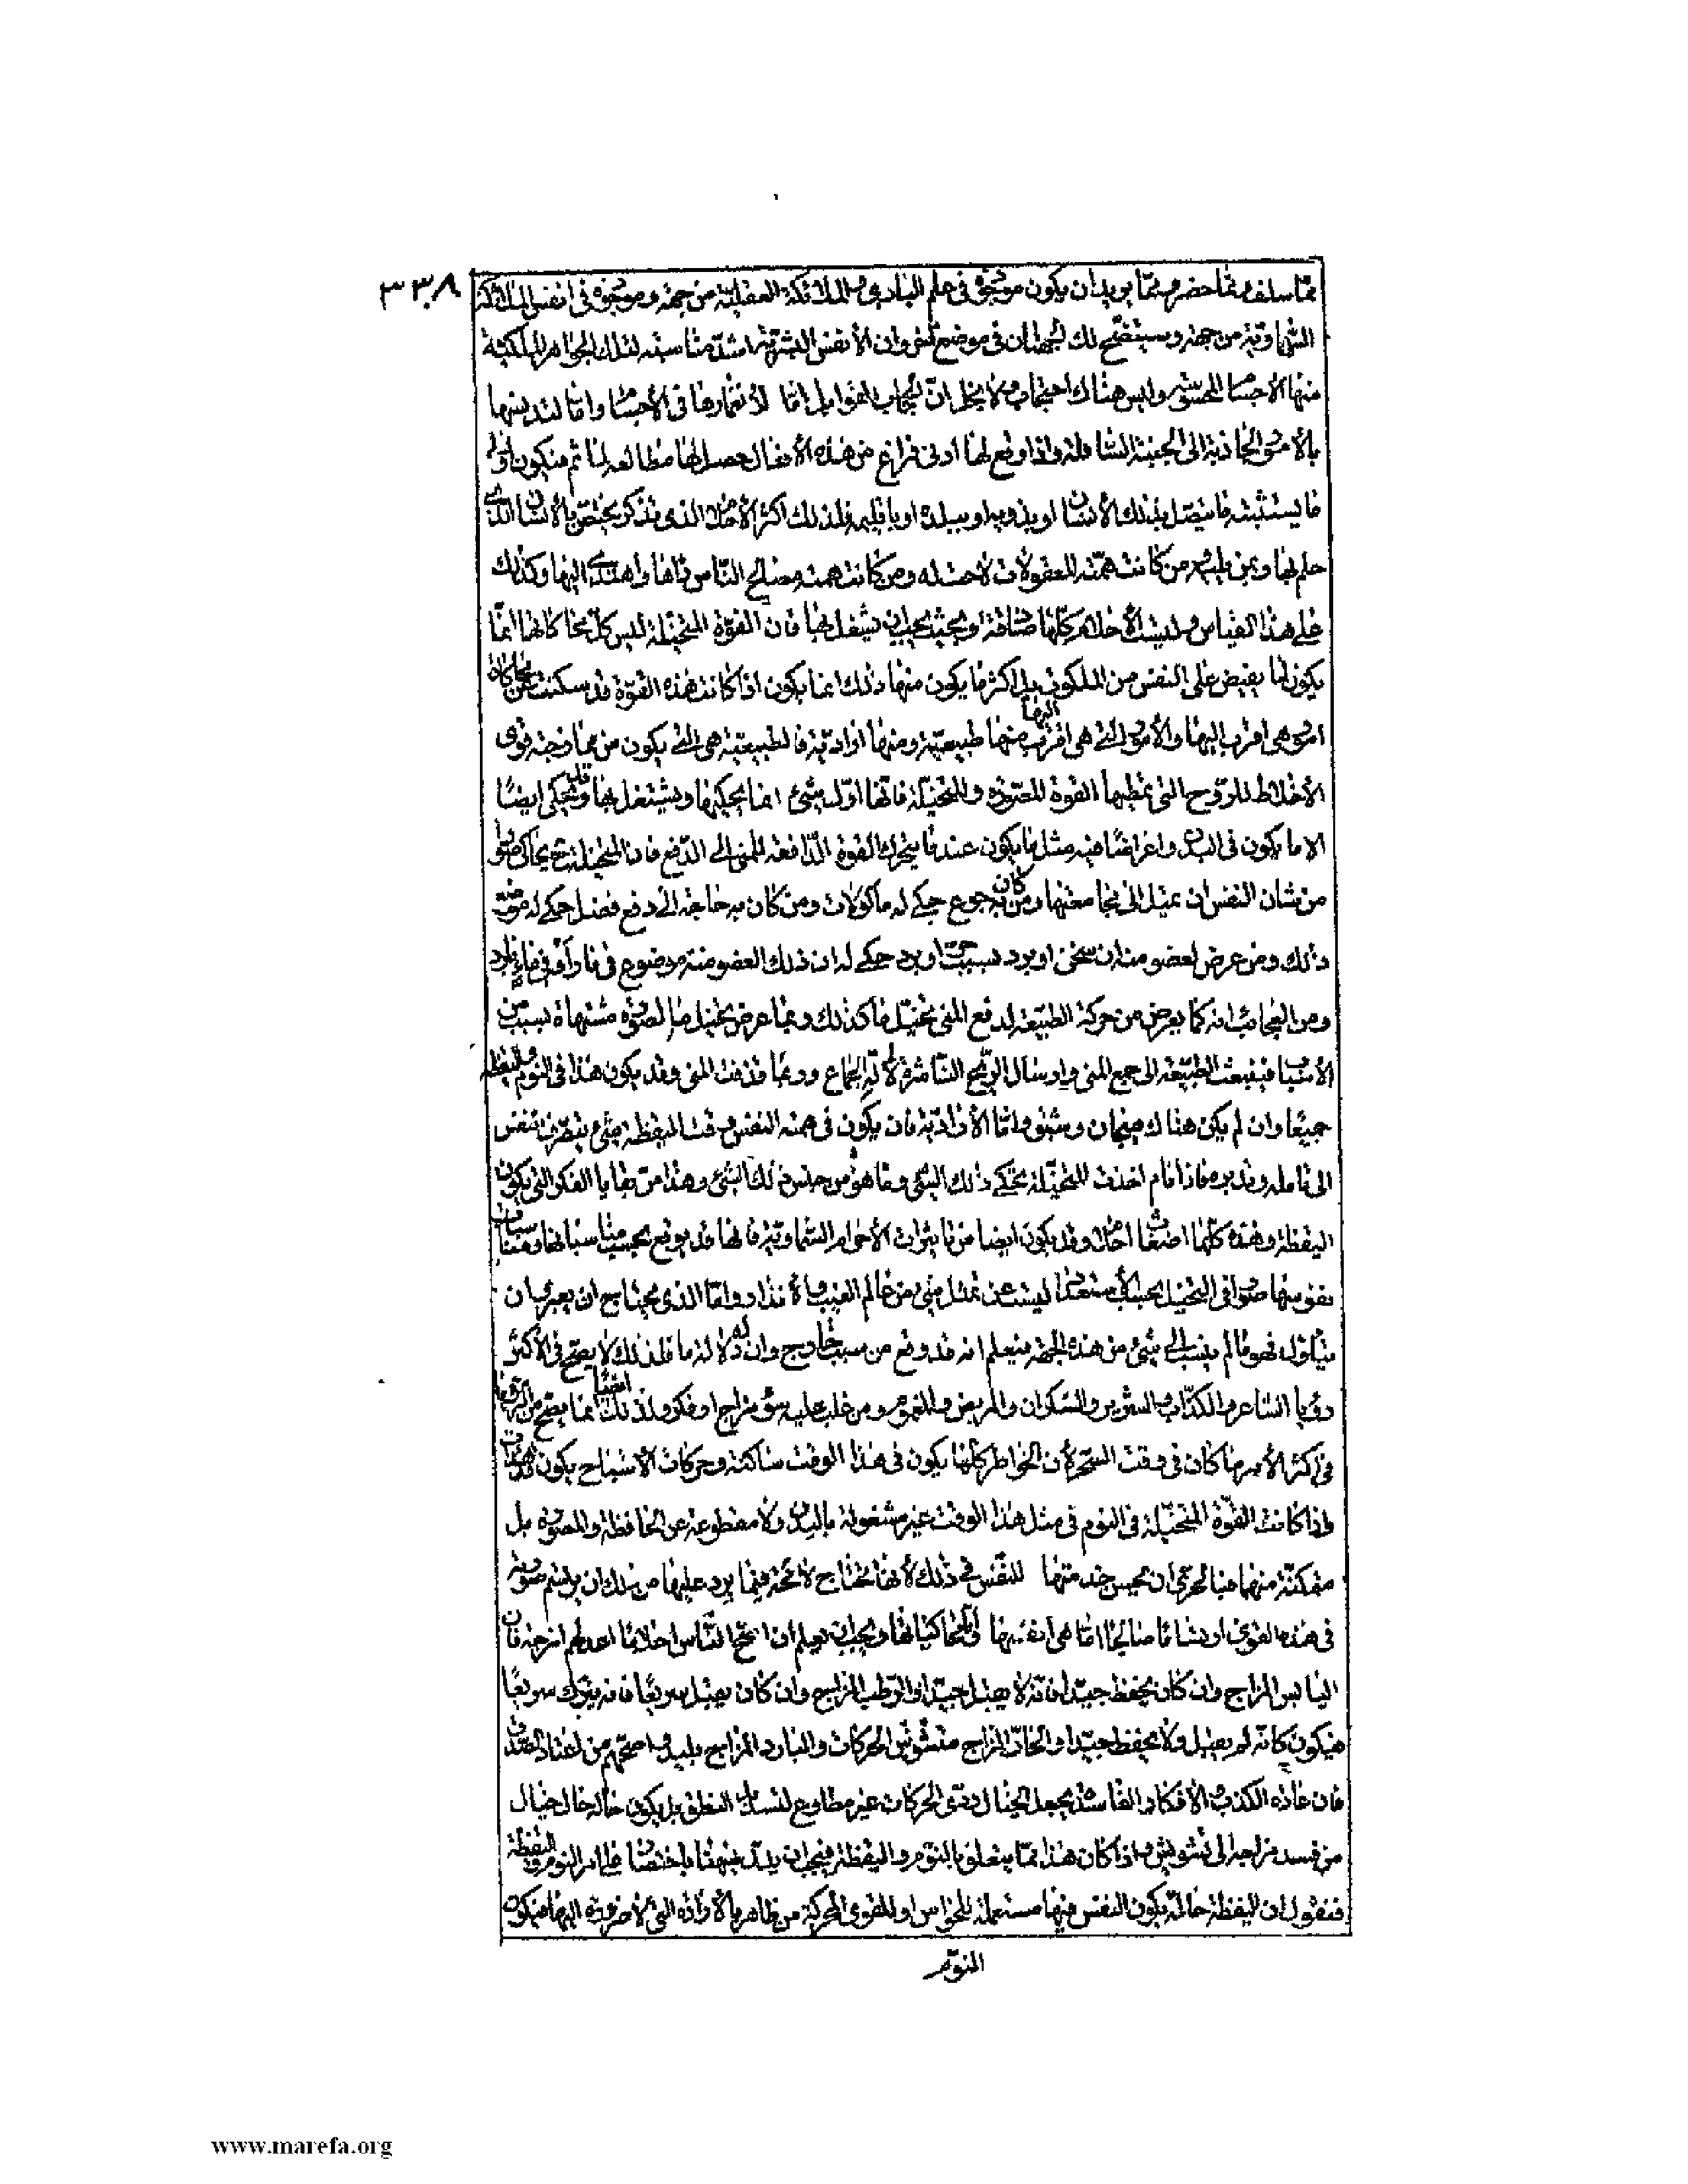 ٣٣٨
مما سلف ومما حضر ومما يريد ان يكون موجودة فى علم البارى والملائكة العقلية من جهة وموجودة فى انفس الملائكة
السماوية من جهة وسيتضح لك الجهتان فى موضع اخر وان الأنفس البشرية اشد مناسبة لتلك الجواهر الملكية
منها الأجسام المحسوسة وليس هناك احتجاب ولا بخل ان الحجاب للقوابل اما لانغمارها فى الأجسام واما لتدنسها
بالأمور الجاذبة الى الجنبة السافلة واذا وقع لها ادنى فراغ من هذه الأفعال حصل لها مطالعة لما ثم فيكون اولى
ما يستثبته ما يتصل بذلك الأنسان او بذويه او ببلده او باقليمه فلذلك اكثر الأحلام الذى تذكر يختص بالأنسان الذى
حلم بها وبمن يليه ومن كانت همته المعقولات لاحت له ومن كانت همته مصالح الناس رآها واهتدى اليها وكذلك
على هذا القياس وليست الأحلام كلها صادقة او بحيث يجب ان يشتغل بها فان القوة المتخيلة ليس كل محاكاتها انما
يكون لما يفيض على النفس من الملكوت بل اكثر ما يكون منها ذلك انما يكون اذا كانت هذه القوة قد سكنت عن محاكاة
امور هى اقرب اليها والأمور التى هى اقرب اليها منها طبيعية ومنها ارادية فالطبيعية هى التى يكون من ممازجة قوى
الأخلاط للروح التى تمطيها القوة المصورة والمتخيلة فانها اول شئ انما يحكيها ويشتغل بها وقد يحكى ايضا
الاما يكون فى البدن واعراضا فيه مثل ما يكون عند ما يتحرك القوة الدافعة للمنى الى الدفع فان المتخيلة ح يحاكى صورا
من شان النفس ان تميل الى مجامعتها ومن كان به جوع حكى له ماكولات ومن كان به حاجة الى دفع فضل حكى له موضع
ذلك ومن عرض لعضو منه ان سخن او برد بسبب حر او برد حكى له ان ذلك العضو منه موضوع فى نار او فى ماء بارد
ومن العجائب انه كما يعرض من حركة الطبيعة لدفع المنى تخيل ما كذلك ربما عرض تخيل ما لصورة مشتهاة بسبب من
الأسباب فينبعث الطبيعة الى جمع المنى وارسال الريح الناشرة لآلة الجماع وربما قذفت المنى وقد يكون هذا فى النوم واليقظة
جميعا وان لم يكن هناك هيجان وشبق واما الأرادية فان يكون فى همة النفس وقت اليقظة شئ ينصرف النفس
الى تامله وتدبره فاذا نام اخذت المتخيلة يحكى ذلك الشئ وما هو من جنس ذلك الشئ وهذا من بقايا الفكر التى يكون
اليقظة وهذه كلها اضغاث احلام وقد يكون ايضا من تاثيرات الأجرام السماوية فانها قد يوقع بحسب مناسباتها ومناسبات
نفوسها صورا فى التخيل بحسب الأستعداد ليست عن تمثل شئ من عالم الغيب والأنذار واما الذى يحتاج ان يعبر وان
يتاول فهو ما لم ينسب الى شئ من هذه الجهة فيعلم انه قد وقع من سبب خارج وان له دلالة ما فلذلك لا يصح فى الأكثر
رؤيا الشاعر والكذاب والشرير والسكران والمريض والمغموم ومن غلب عليه سؤ مزاج او فكر ولذلك ايضا انما يصح من الرؤيا
فى اكثر الأمر ما كان فى وقت السحر لأن الخواطر كلها يكون فى هذا الوقت ساكنة وحركات الأشباح يكون قد هدأت
واذا كانت القوة المتخيلة فى النوم فى مثل هذا الوقت غير مشغولة بالبدن ولا مقطوعة عن الحافظة والمصورة بل
متمكنة منهما فبالحرى ان يحسن خدمتها للنفس فى ذلك لأنها تحتاج لا محة فيما يرد عليها من ذلك ان يرتسم صورته
فى هذه القوى ارتساما صالحا اما هى انفسها او محاكياتها ويجب ان يعلم ان اصح الناس احلاما اعدلهم امزجة فان
اليابس المزاج وان كان يحفظ جيدا فانه لا يقبل جيدا والرطب المزاج وان كان يقبل سريعا فانه يترك سريعا
فيكون كانه لم يقبل ولا يحفظ جيدا والحار المزاج متشوش الحركات والبارد المزاج بليد واصحهم من اعتاد الصدق
فان عادة الكذب والأفكار الفاسدة يجعل الخيال ردى الحركات غير مطاوع لتسديد النطق بل يكون حاله حال خيال
من فسد مزاجه الى تشويش واذا كان هذا مما يتعلق بالنوم واليقظة فيجب ان يدل ههنا باختصار على امر النوم واليقظة
فنقول ان اليقظة حالة يكون النفس فيها مستعملة للحواس او للقوى المحركة من ظاهر بالأرادة التى لا ضرورة اليها فيكون
النوم
www.marefa.org